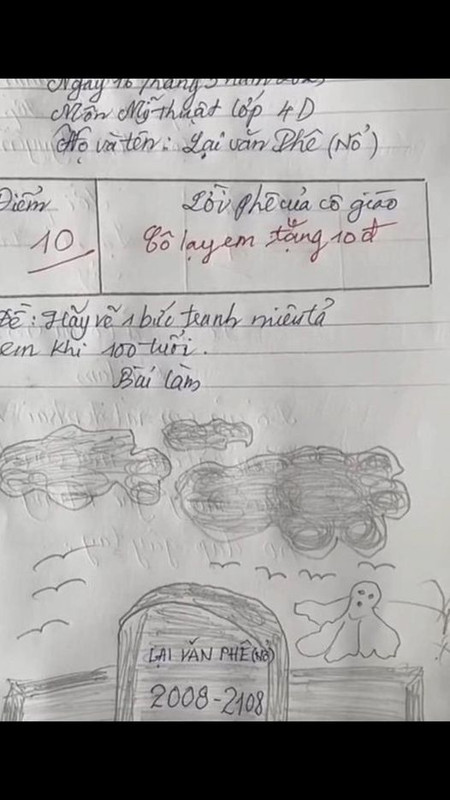 Ngày 16 tháng 5 năm
Môn Mỹ thuật lớp 4D
Họ và tên: Lại văn Phê (Nổ)
Điểm
Lời phê của cô giáo
10
Cô lạy em tặng 10đ
Đề: Hãy vẽ 1 bức tranh miêu tả
em khi 100 tuổi.
Bài làm
LẠI VĂN PHÊ (NỔ)
2008-2108